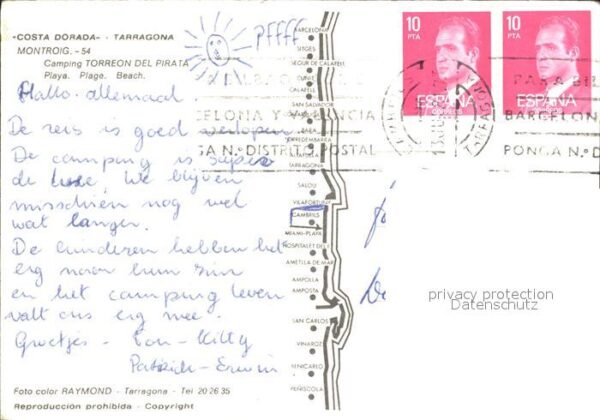 «COSTA DORADA» - TARRAGONA
MONTROIG. - 54
Camping TORREON DEL PIRATA
Playa. Plage. Beach.
pfffff
Hallo allemaal.
De reis is goed verlopen.
De camping is super
de luxe, We blijven
misschien nog wel
wat langer.
De kinderen hebben het
erg naar hun zin
en het camping leven
valt ons erg mee.
Groetjes - Ton - Kitty
Patrick - Erwin
Foto color RAYMOND - Tarragona - Tel 20 26 35
Reproducción prohibida - Copyright
BARCELONA
SITGES
SEGUR DE CALAFELL
CUNIT
CALAFELL
SAN SALVADOR
BARA
TORREDEMBARRA
ALTAFULLA
TARRAGONA
SALOU
VILAFORTUNY
CAMBRILS
MIAMI-PLAYA
HOSPITALET DEL I.
AMETLLA DE MAR
AMPOLLA
AMPOSTA
SAN CARLOS
VINAROZ
BENICARLO
PEÑISCOLA
10 PTA
ESPAÑA
CORREOS
10 PTA
ESPAÑA
PARA
BARCELONA Y VALENCIA
PONGA N.º DISTRITO POSTAL
BARCELON
PONGA N.º D
TARRAGONA
privacy protection
Datenschutz